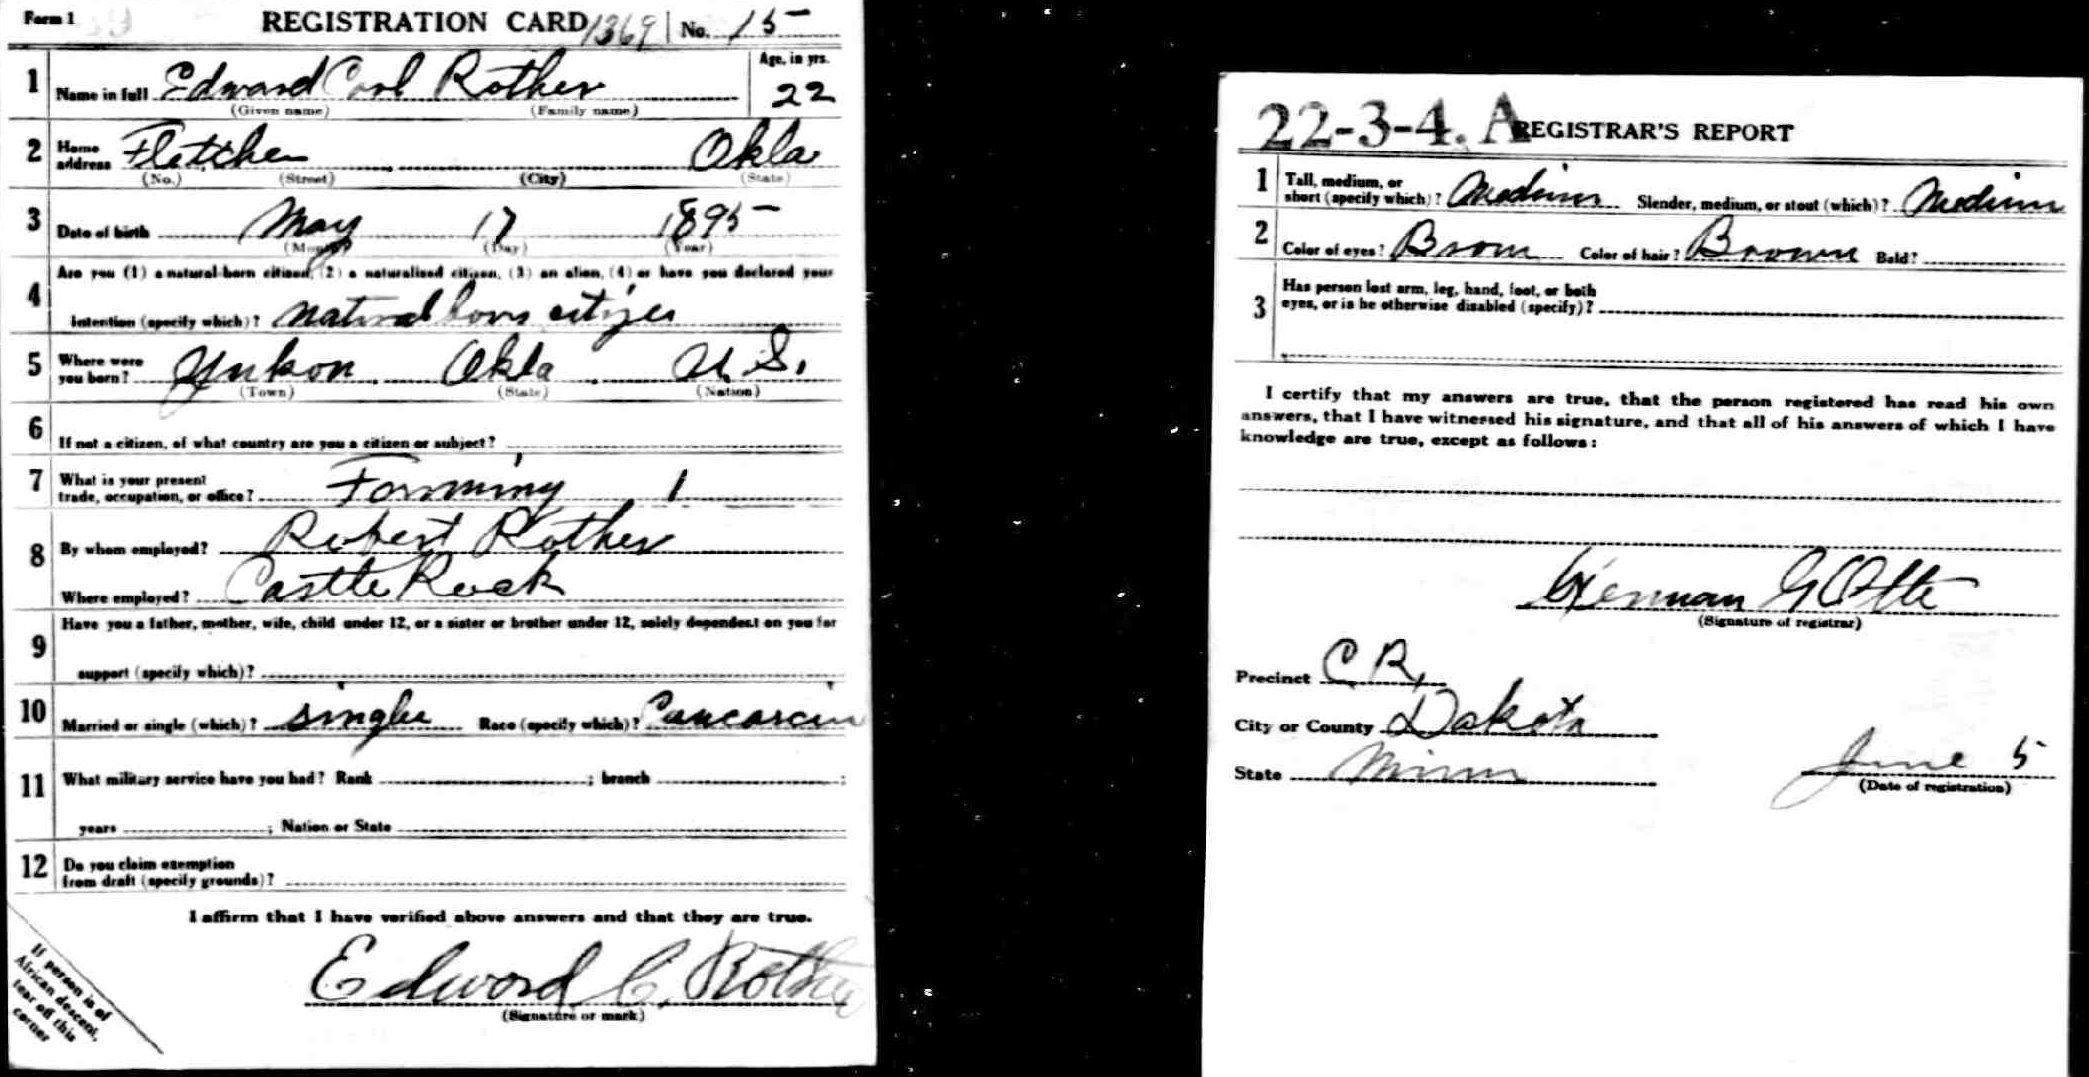 Form 1 REGISTRATION CARD 1369 No. 15
1 Name in full Edward Carl Rother Age, in yrs. 22
(Given name) (Family name)
2 Home address Fletcher Okla
(No.) (Street) (City) (State)
3 Date of birth May 17 1895
(Month) (Day) (Year)
4 Are you (1) a natural-born citizen, (2) a naturalized citizen, (3) an alien, (4) or have you declared your
intention (specify which)? natural born citizen
5 Where were you born? Yukon Okla U.S.
(Town) (State) (Nation)
6 If not a citizen, of what country are you a citizen or subject?
7 What is your present
trade, occupation, or office? Farming 1
8 By whom employed? Robert Rother
Where employed? Castle Rock
9 Have you a father, mother, wife, child under 12, or a sister or brother under 12, solely dependent on you for
support (specify which)?
10 Married or single (which)? single Race (specify which)? Caucasian
11 What military service have you had? Rank ; branch ;
years ; Nation or State
12 Do you claim exemption
from draft (specify grounds)?
I affirm that I have verified above answers and that they are true.
Edward C. Rother
(Signature or mark)
If person is of
African descent,
tear off this
corner
22-3-4. A REGISTRAR'S REPORT
1 Tall, medium, or
short (specify which)? Medium Slender, medium, or stout (which)? Medium
2 Color of eyes? Brown Color of hair? Brown Bald?
3 Has person lost arm, leg, hand, foot, or both
eyes, or is he otherwise disabled (specify)?
I certify that my answers are true, that the person registered has read his own
answers, that I have witnessed his signature, and that all of his answers of which I have
knowledge are true, except as follows:
Herman G Otte
(Signature of registrar)
Precinct C R,
City or County Dakota
State Minn June 5
(Date of registration)